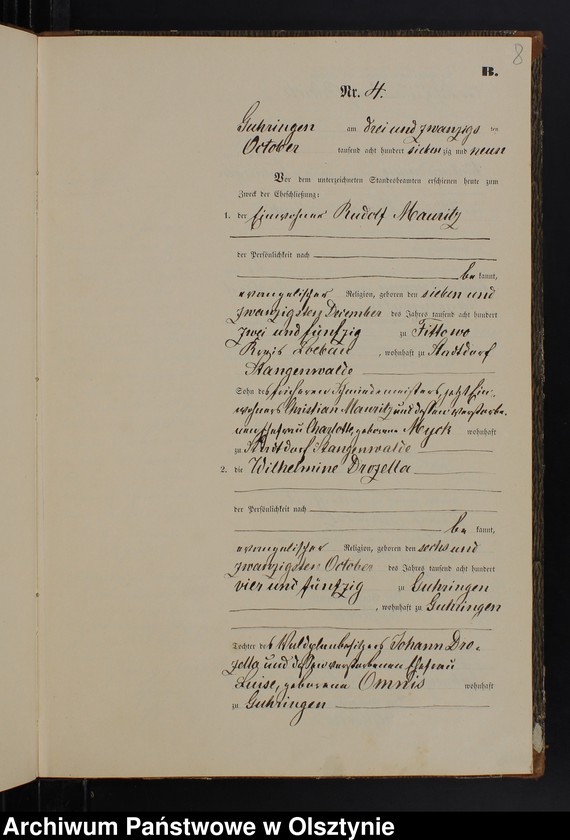 8
B.
Nr. 4.
Guhringen am drei und zwanzigsten
October tausend acht hundert siebenzig und neun
Vor dem unterzeichneten Standesbeamten erschienen heute zum
Zweck der Eheschließung:
1. der Einwohner Rudolf Mauritz
der Persönlichkeit nach
be kannt,
evangelischer Religion, geboren den sieben und
zwanzigsten Dezember des Jahres tausend acht hundert
zwei und fünfzig zu Tittowo
Kreis Loebau, wohnhaft zu Stadtdorf
Stangenwalde
Sohn des früheren Schmiedemeisters jetzt Ein-
wohners Christian Mauritz und dessen verstorbe-
nen Ehefrau Charlotte, geborene Myck wohnhaft
zu Stadtdorf Stangenwalde
2. die Wilhelmine Drozella
der Persönlichkeit nach
be kannt,
evangelischer Religion, geboren den sechs und
zwanzigsten October des Jahres tausend acht hundert
vier und fünfzig zu Guhringen
, wohnhaft zu Guhringen
Tochter des Johann Dro-
zella und dessen verstorbenen Ehefrau
Luise, geborene Omnis wohnhaft
zu Guhringen
Archiwum Państwowe w Olsztynie